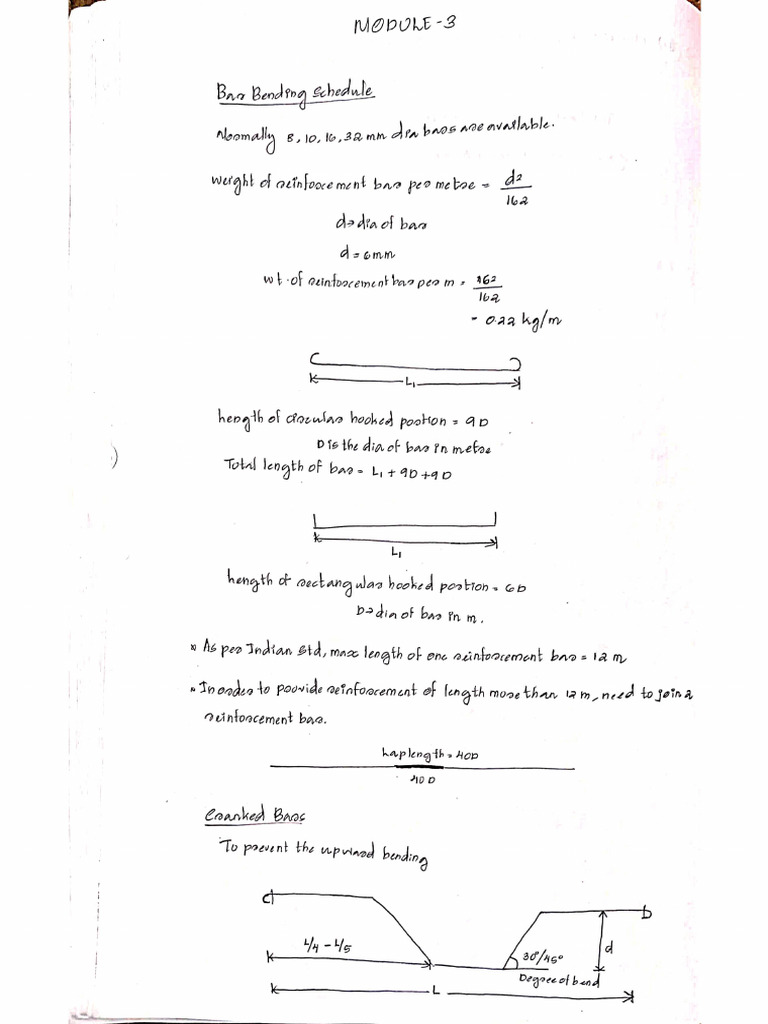 MODULE-3
Bar Bending Schedule
Normally 8, 10, 16, 32 mm dia bars are available.
Weight of reinforcement bar per metre = d²/162
d → dia of bar
d = 6mm
wt. of reinforcement bar per m = 6²/162
= 0.22 kg/m
L₁
Length of circular hooked portion = 9D
D is the dia of bar in metre
Total length of bar = L₁ + 9D + 9D
L₁
Length of rectangular hooked portion = 6D
D → dia of bar in m.
* As per Indian Std, max length of one reinforcement bar = 12 m
* In order to provide reinforcement of length more than 12 m, need to join 2
reinforcement bar.
Lap length = 40D
40 D
Cranked Bars
To prevent the upward bending
L/4 - L/5
30°/45°
d
Degree of bend
L